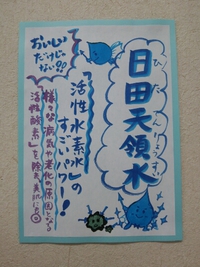 日田天領水
ひたてんりょうすい
「活性水素水」の
すごいパワー！
おいしい
だけじゃ
ない!!
様々な病気や老化の原因となる
「活性酸素」を除去、美肌に◎